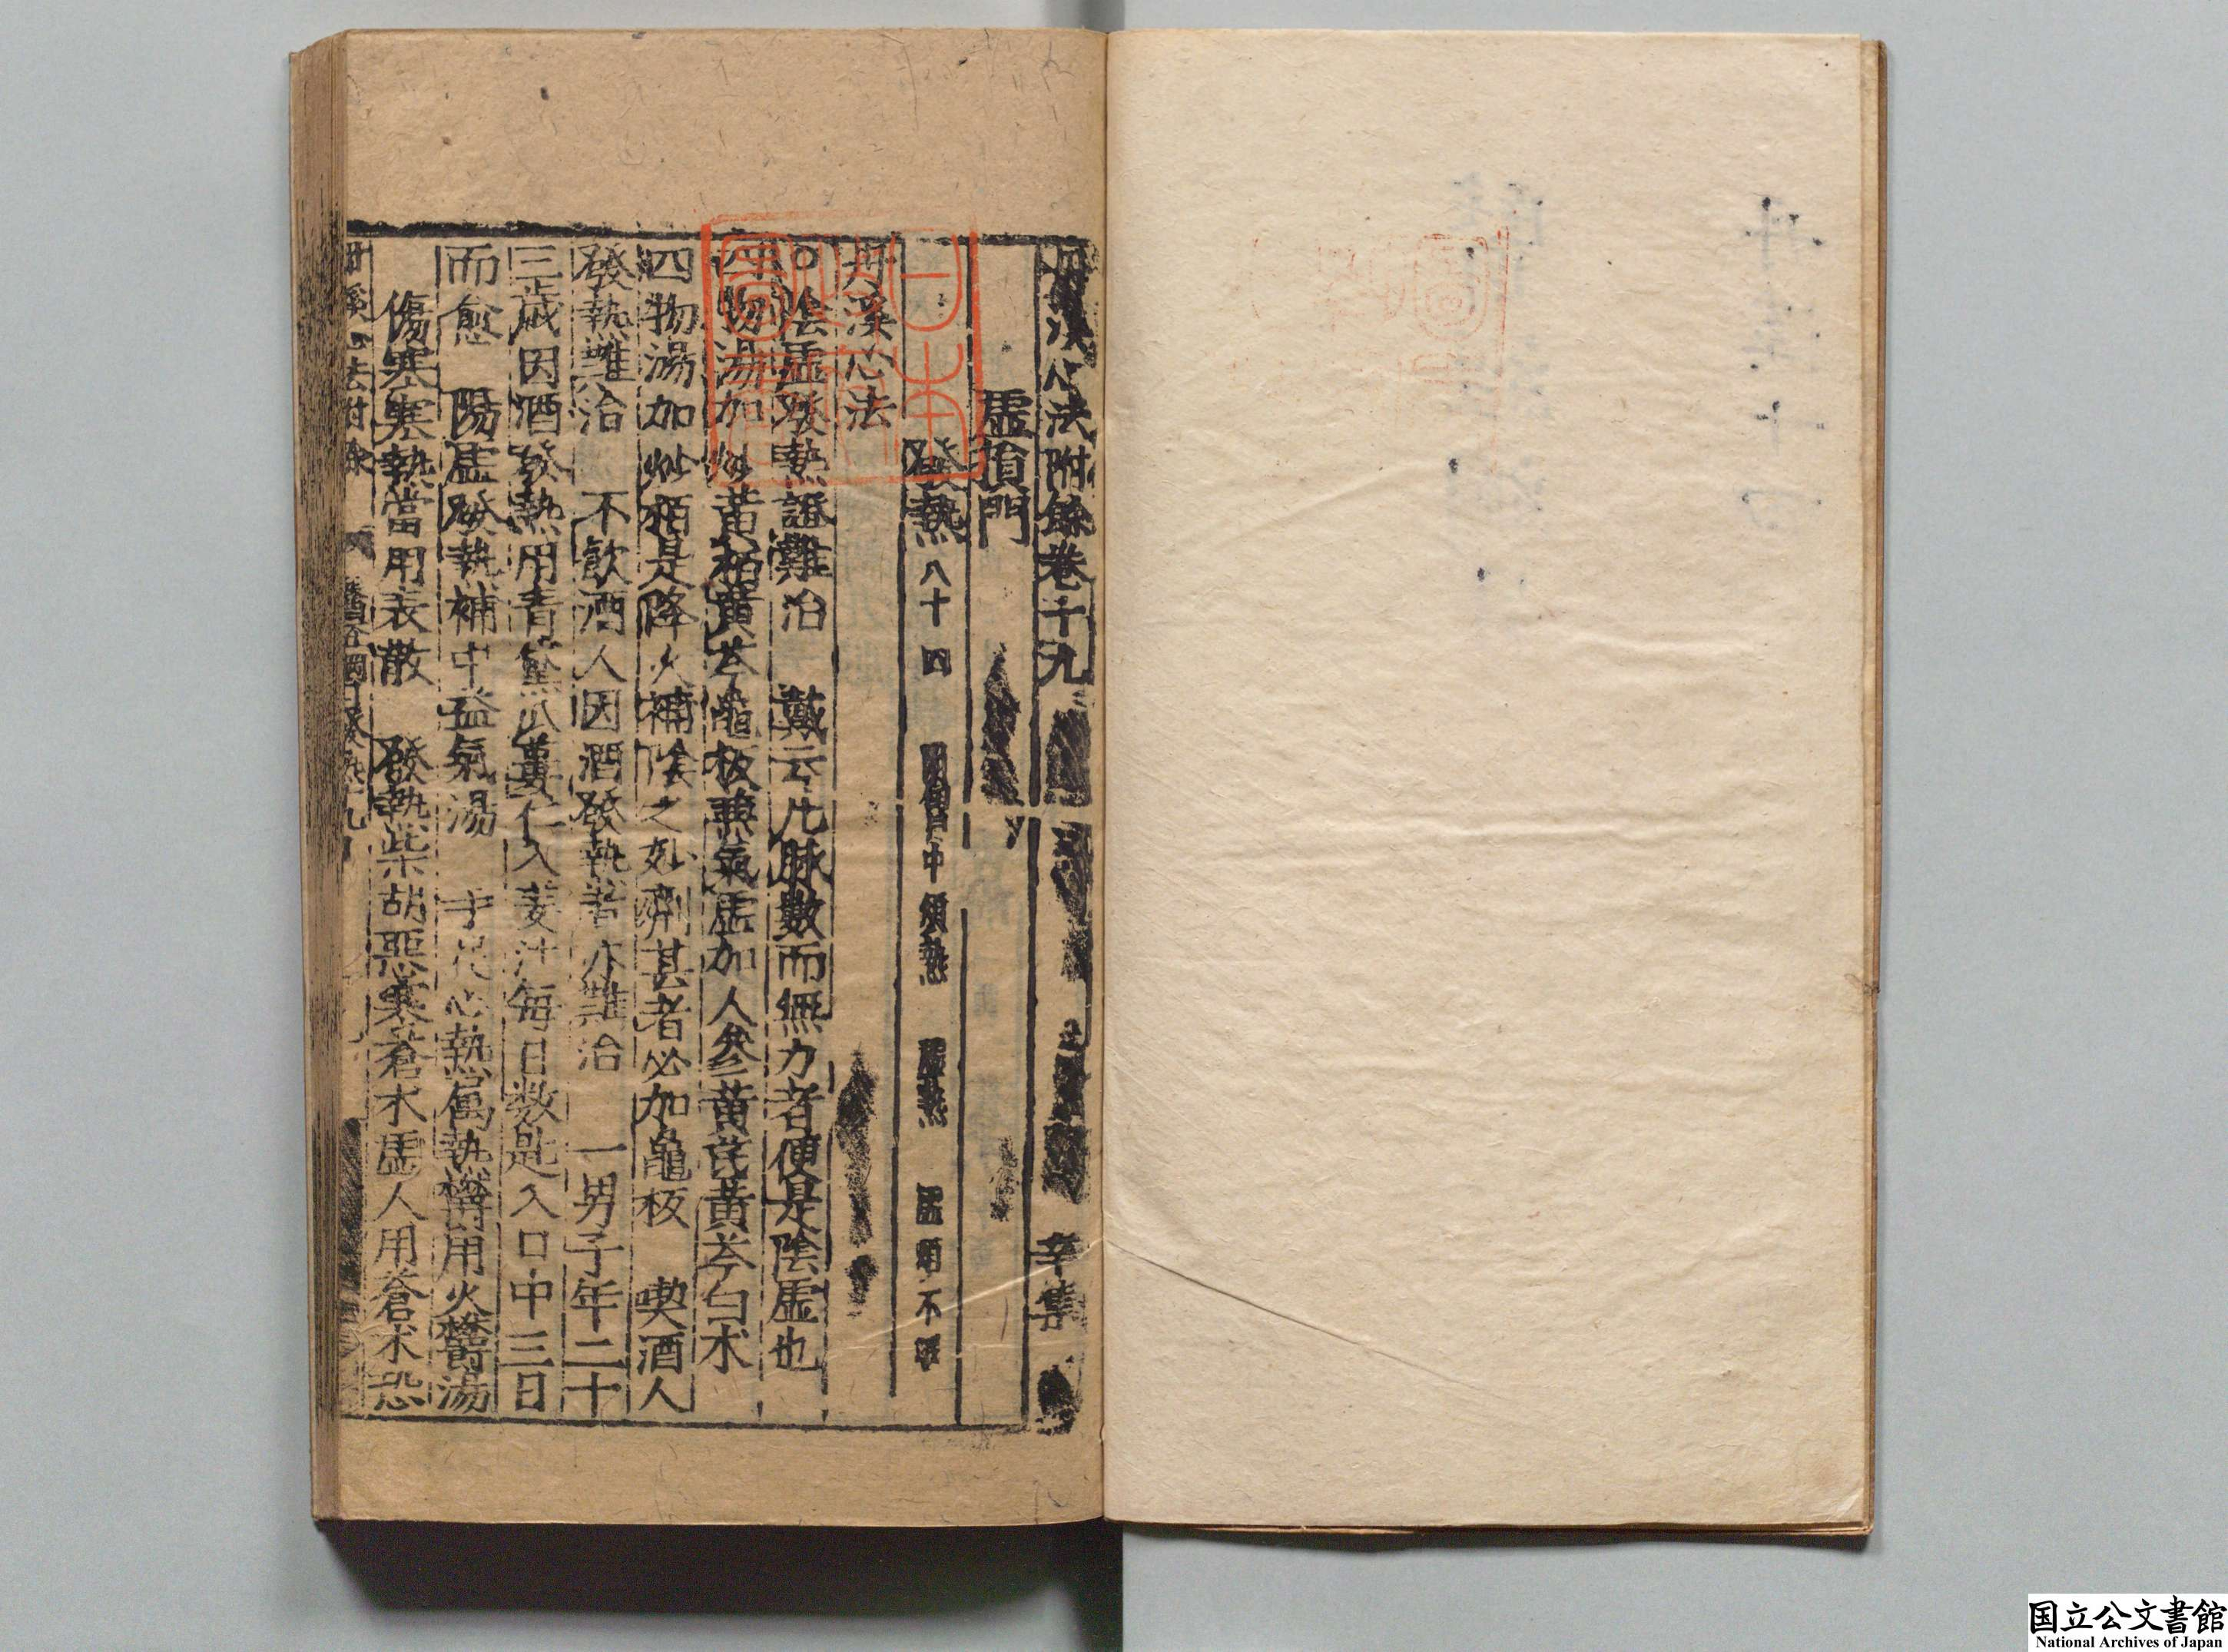 丹溪心法附餘卷十九 辛集
虛損門
發熱八十四 附胸中煩熱 虛熱 虛煩不眠
丹溪心法
○陰虛發熱證難治 戴云凡脉數而無力者便是陰虛也
四物湯加炒黃栢黃芩龜板兼氣虛加人參黃芪黃芩白朮
四物湯加炒栢是降火補陰之妙劑甚者必加龜板 喫酒人
發熱難治 不飲酒人因酒發熱者亦難治 一男子年二十
三歲因酒發熱用青黛瓜蔞仁入姜汁每日数匙入口中三日
而愈 陽虛發熱補中益氣湯 手足心熱属熱欝用火欝湯
傷寒寒熱當用表散 發熱柴胡惡寒蒼朮虛人用蒼朮恐
丹溪心法附餘 醫各調 發熱 九
日本
国立公文書館
National Archives of Japan